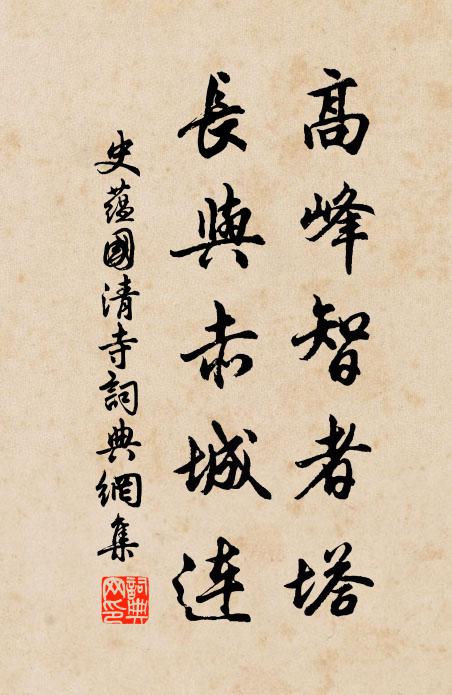 高峰智者塔
長與赤城連
史蘊國清寺詞典網集
詞典網印